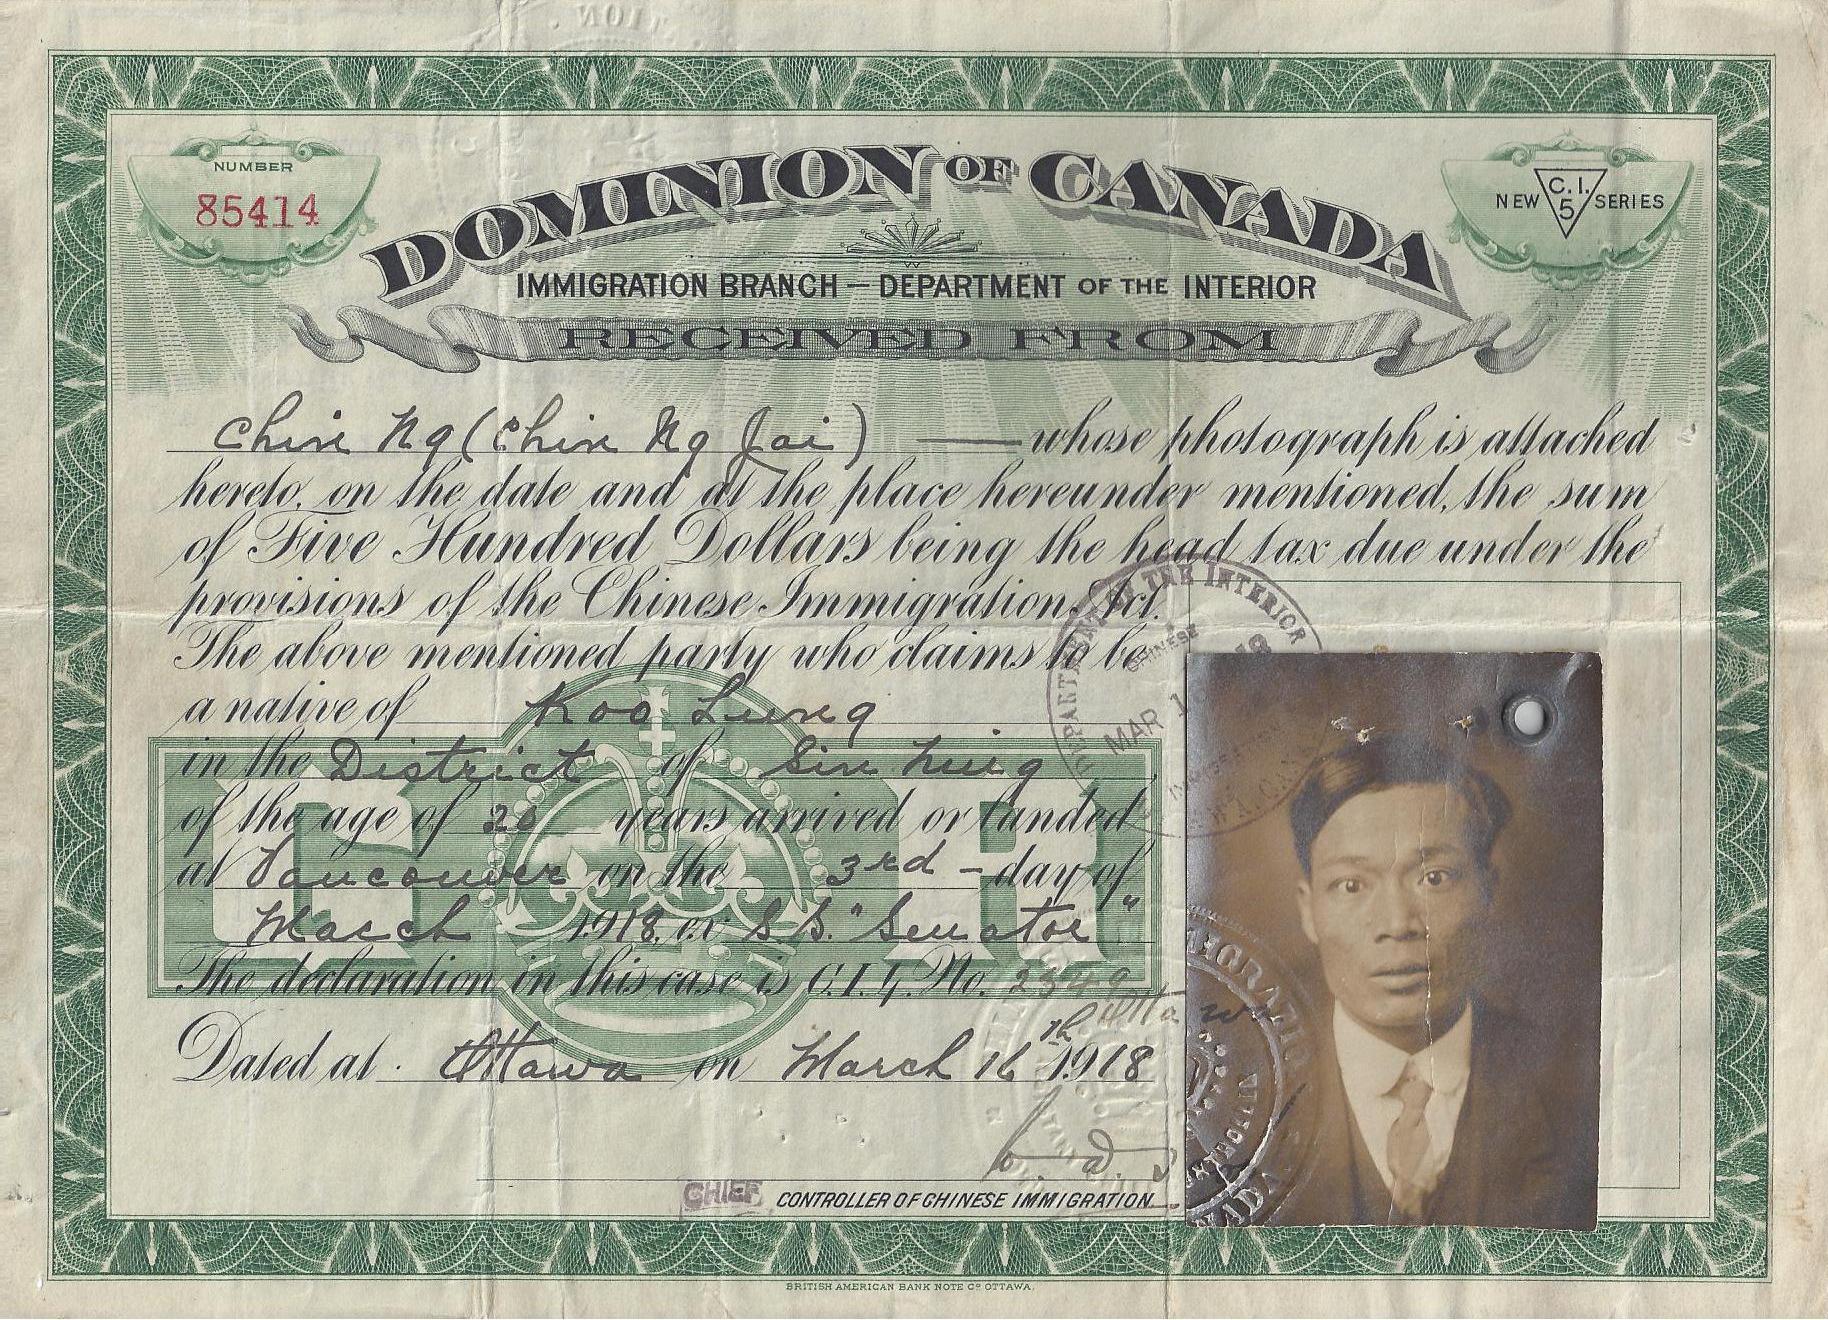 NUMBER
85414
DOMINION OF CANADA
NEW C.I. 5 SERIES
IMMIGRATION BRANCH — DEPARTMENT OF THE INTERIOR
RECEIVED FROM
Chin Ng (Chin Ng Jai) — whose photograph is attached
hereto, on the date and at the place hereunder mentioned, the sum
of Five Hundred Dollars being the head tax due under the
provisions of the Chinese Immigration Act.
The above mentioned party who claims to be
a native of Koo Lung
in the District of Sin Ning
of the age of 20 years arrived or landed
at Vancouver on the 3rd - day of
March 1918, ex S.S. "Senator"
The declaration in this case is C.I.4. No. 2349
Ottawa
Dated at Ottawa on March 16th 1918
CHIEF CONTROLLER OF CHINESE IMMIGRATION
DEPARTMENT OF THE INTERIOR
CHINESE
MAR
IMMIGRATION
CANADA
BRITISH AMERICAN BANK NOTE CO OTTAWA.